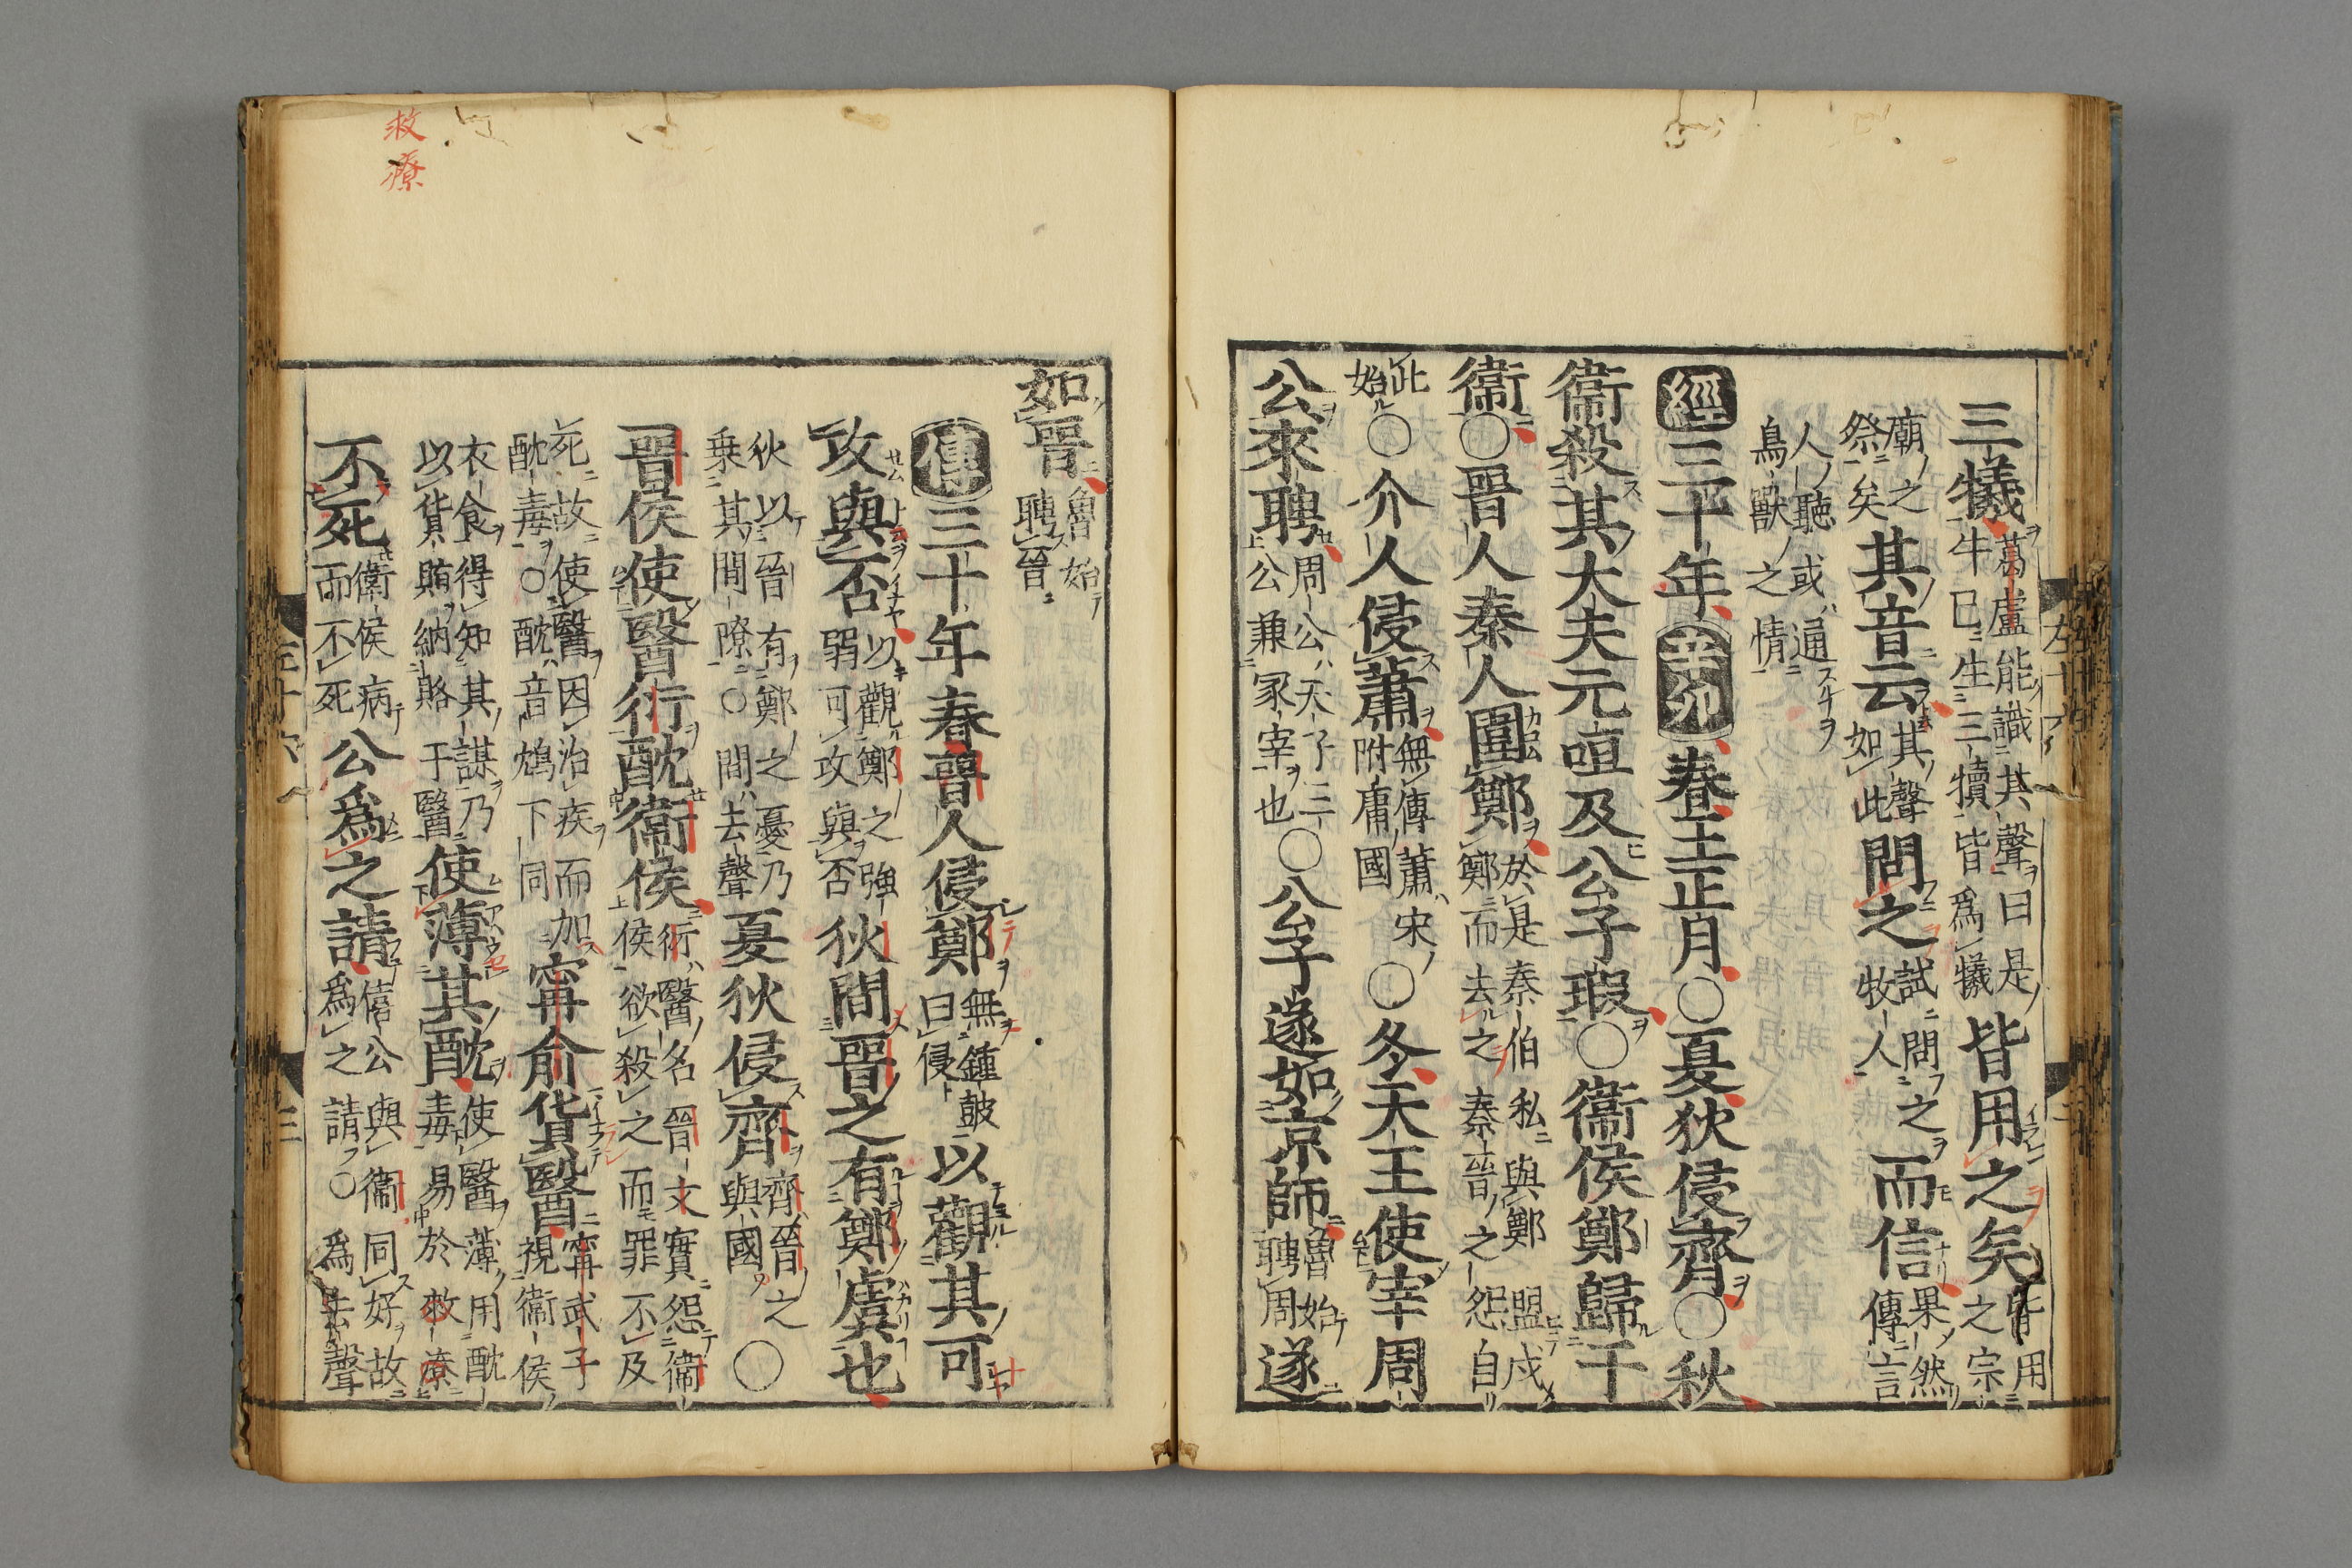 三犧葛盧能識其聲曰是牛已生三犢皆爲犧皆用之矣皆用之宗
廟之祭矣其音云其聲如此問之試問之牧人而信果然傳言
人聽或通鳥獸之情
經三十年辛卯春王正月○夏狄侵齊○秋
衞殺其大夫元咺及公子瑕○衞侯鄭歸于
衞○晉人秦人圍鄭於是秦伯私與鄭盟戍鄭而去之秦晉之怨自
此始○介人侵蕭無傳蕭宋附庸國○冬天王使宰周
公來聘周公天子三公兼冢宰也○公子遂如京師魯始聘周遂
如晉魯始聘晉
傳三十年春晉人侵鄭無鍾皷曰侵以觀其可
攻與否以觀鄭之強弱可攻與否狄間晉之有鄭虞也
狄以晉有鄭之憂乃乗其間隙○間去聲夏狄侵齊齊晉之與國○
晉侯使醫衍酖衞侯衍醫名晉文實怨衞侯欲殺之而罪不及
死故使醫因治疾而加酖毒○酖音鴆下同甯俞貨醫甯武子視衞侯
衣食得知其謀乃以貨賄納賂于醫使薄其酖使醫薄用酖毒易於救療
不死衞侯病而不死公爲之請僖公與衞同好故爲之請○爲去聲
救療